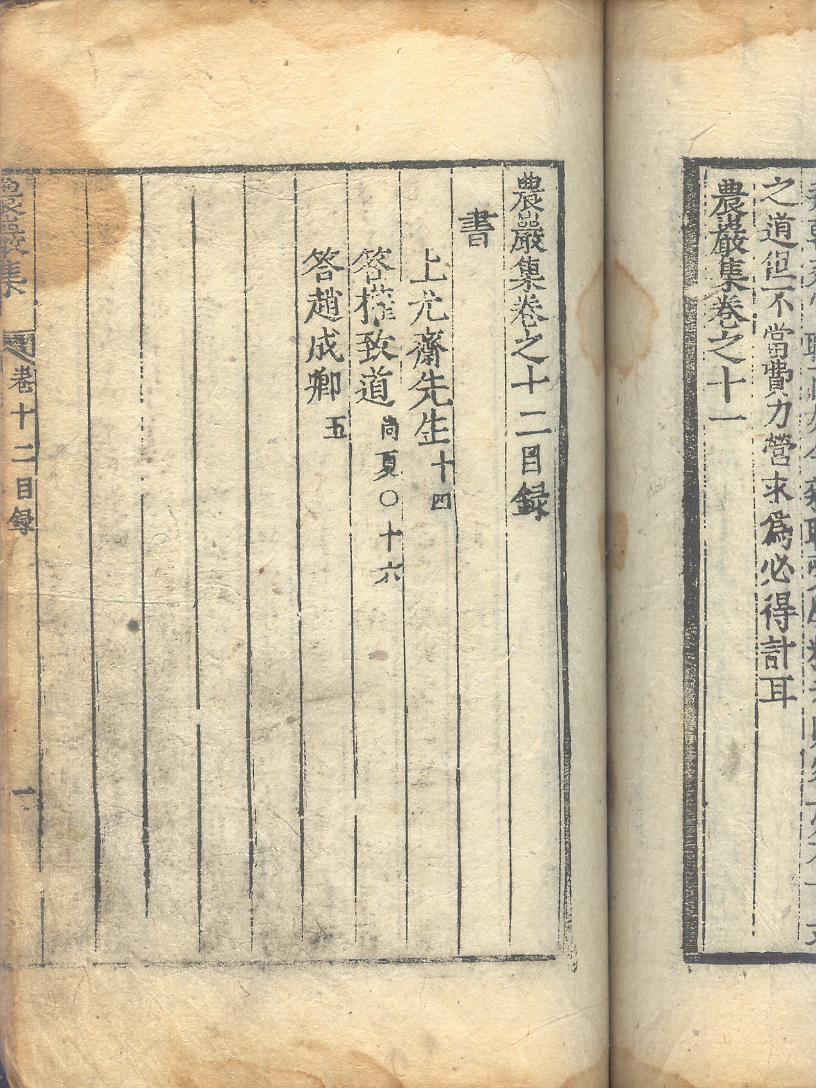 之道但不當費力營求爲必得計耳
農巖集卷之十一
農巖集卷之十二目録
書
上尤齋先生 十四
答權致道 尙夏〇十六
答趙成卿 五
農巖集 卷十二目録 一